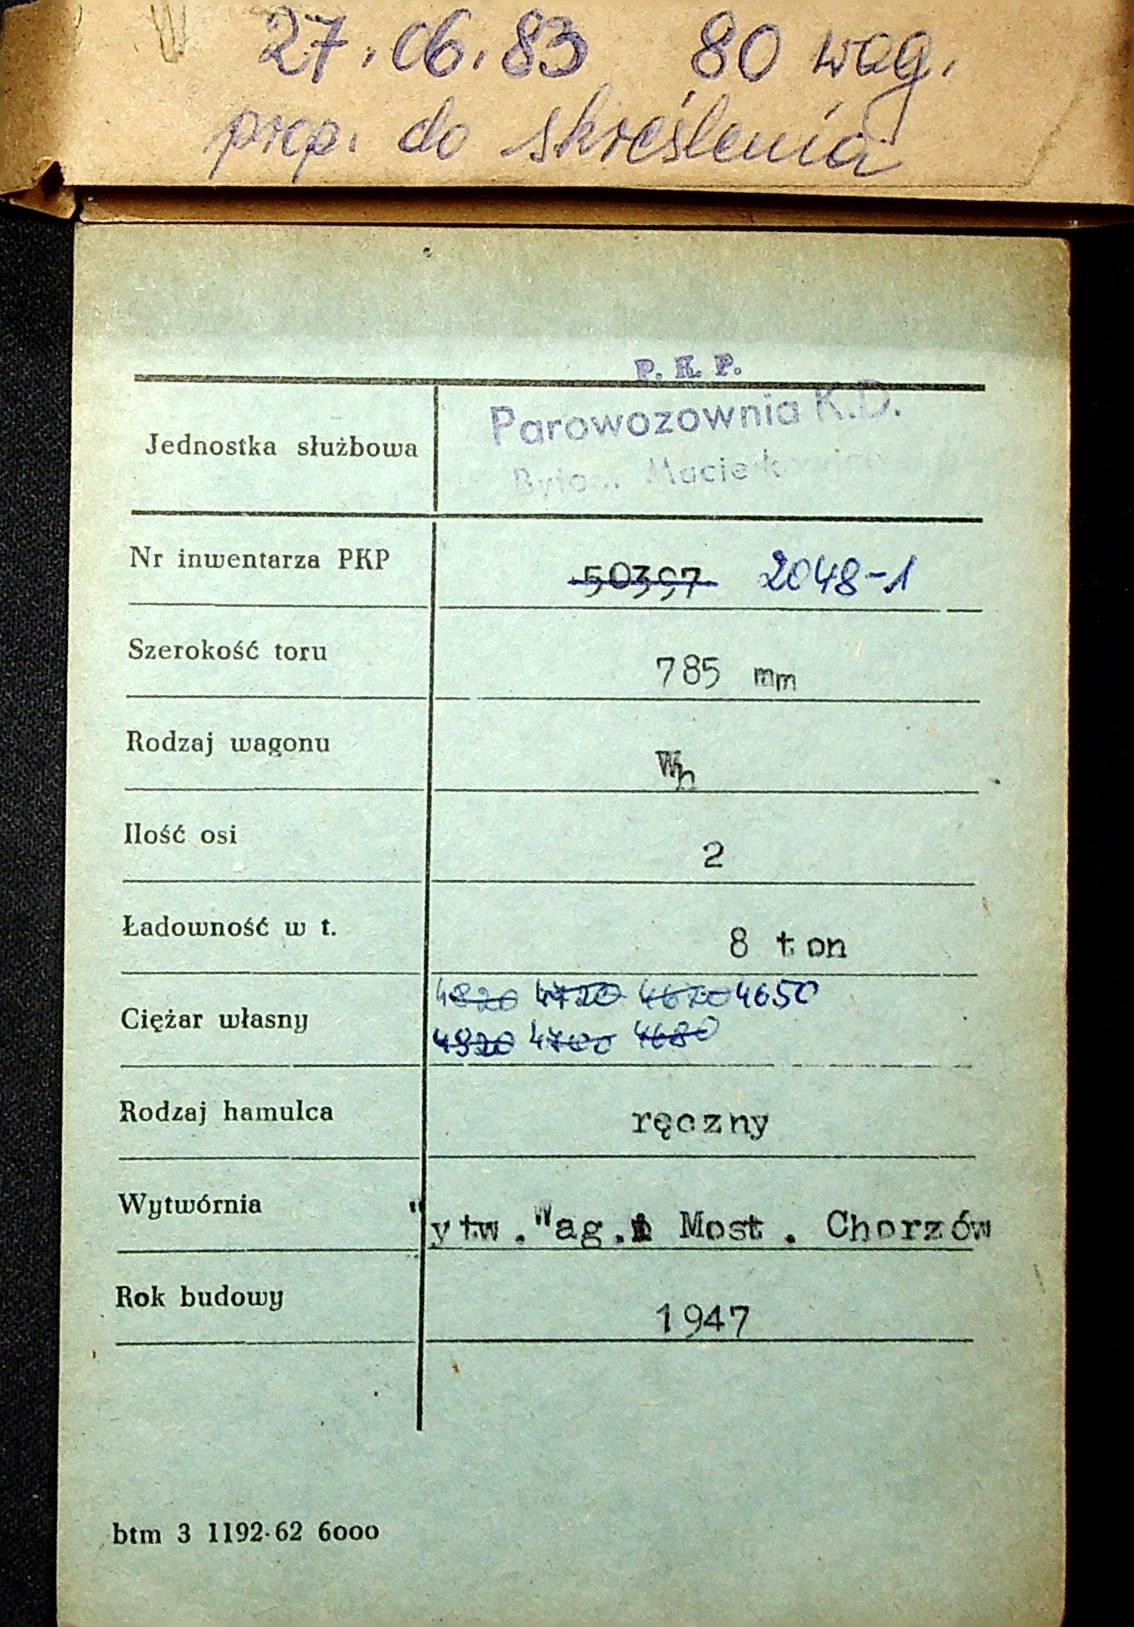 27.06.83 80 wag.
prop. do skreślenia
P. K. P.
Jednostka służbowa Parowozownia K.D.
Nr inwentarza PKP 50397 2048-1
Szerokość toru 785 mm
Rodzaj wagonu Wh
Ilość osi 2
Ładowność w t. 8 ton
Ciężar własny 4820 4720 4670 4650
4920 4700 4680
Rodzaj hamulca ręczny
Wytwórnia Wytw. Wag.i Most. Chorzów
Rok budowy 1947
btm 3 1192-62 6000